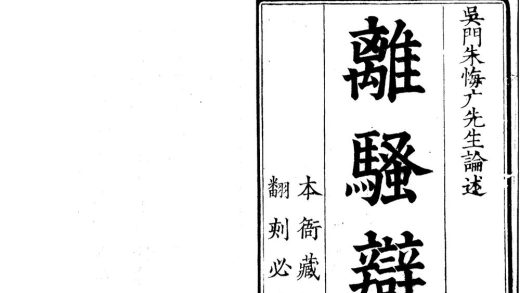 吳門朱悔广先生論述
離騷辯
本衙藏
翻刻必